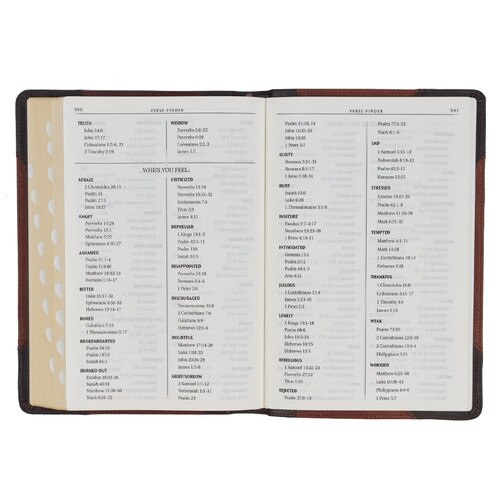 VERSE FINDER
TRUTH
John 14:6
John 17:17
Colossians 1:5-6, 23
2 Timothy 2:19
WISDOM
Proverbs 2:6-22
Colossians 2:2-3
James 1:5
WHEN YOU FEEL:
AFRAID
2 Chronicles 20:15
Psalm 23
Psalm 27:3
John 14:27
ANGRY
Proverbs 14:29
Proverbs 15:1
Matthew 5:22
Ephesians 4:25-27
ASHAMED
Psalm 51:1-4
Matthew 10:32-33
Romans 1:16
BITTER
Luke 15:11-32
Ephesians 4:30-32
Hebrews 12:14-17
BORED
Galatians 5:13
1 Thessalonians 5:16-18
BROKENHEARTED
Psalm 34:18
Psalm 147:3
Isaiah 61:1
BURNED OUT
Exodus 18:13-26
Isaiah 40:31
Matthew 11:28-30
Mark 6:35-32
CRITICIZED
Proverbs 15:18
Ecclesiastes 7:5
Titus 2:8
James 4:11
DEPRESSED
1 Kings 19:1-8
Psalm 42:5-11
Psalm 139
Isaiah 45:3
DISAPPOINTED
Romans 5:4-5
1 Peter 2:6
DISCOURAGED
2 Corinthians 7:6
Galatians 6:9
Hebrews 12:5-6
DOUBTFUL
Matthew 17:14-20
Luke 7:18-23
John 20:24-30
James 1:5-8
GRIEF/SORROW
2 Samuel 1:1-12
Nehemiah 1:1-11
Psalm 23
VERSE FINDER
Psalm 31:10, 14
John 11:33-36
John 16:33
1 Peter 5:7
GUILTY
Romans 3:21-31
Romans 8:1-13
HURT
Isaiah 1:9
Luke 6:28
INSECURE
Exodus 3:7-4:17
1 Peter 4:10-11
INTIMIDATED
Genesis 15:1
Psalm 27:1
Acts 4:31
JEALOUS
1 Corinthians 13:4
James 3:13-18
LONELY
1 Kings 19:1-18
Psalm 68:6
John 15:5-15
Hebrews 10:25
Hebrews 13:5
REBELLIOUS
1 Samuel 15:22-23
Ephesians 5:21-24
Titus 1:10
REJECTED
Mark 6:1-6
SAD
1 Samuel 1:13-18
Nehemiah 8:10-12
Psalm 42:5-11
Romans 12:15
STRESSED
Exodus 18:13-26
Psalm 62:1-2
Matthew 11:28-30
TEMPTED
Matthew 4:1-11
Mark 14:38
1 Corinthians 10:13
Hebrews 2:18
THANKFUL
1 Chronicles 16:8
Colossians 3:15-17
1 Timothy 4:4
James 1:17
WEAK
Psalm 73:26
2 Corinthians 13:4
Philippians 3:21
WORRIED
Matthew 6:25-34
Luke 10:38-42
Philippians 4:6-9
1 Peter 5:7